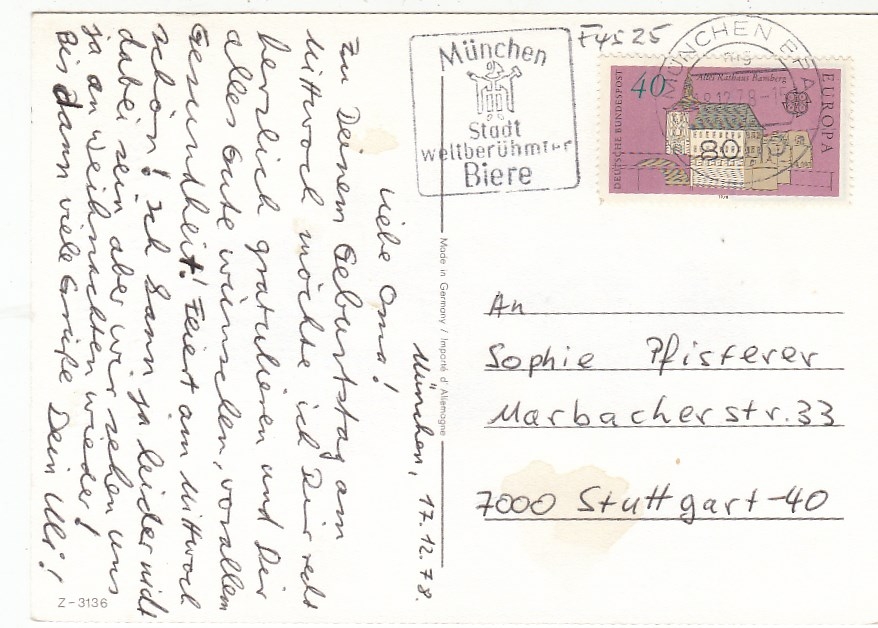 München, 17.12.78.
Liebe Oma!
Zu Deinem Geburtstag am
Mittwoch möchte ich Dir recht
herzlich gratulieren und Dir
alles Gute wünschen, vorallem
Gesundheit! Feiert am Mittwoch
schön! Ich kann ja leider nicht
dabei sein aber wir sehen uns
ja an Weihnachten wieder!
Bis dann viele Grüße Dein Uli!
Z-3136
Made in Germany / Importé d'Allemagne
München
Stadt
weltberühmter
Biere
F4525
MÜNCHEN
40
Altes Rathaus Bamberg
DEUTSCHE BUNDESPOST
EUROPA
80
An
Sophie Pfisterer
Marbacherstr. 33
7000 Stuttgart-40